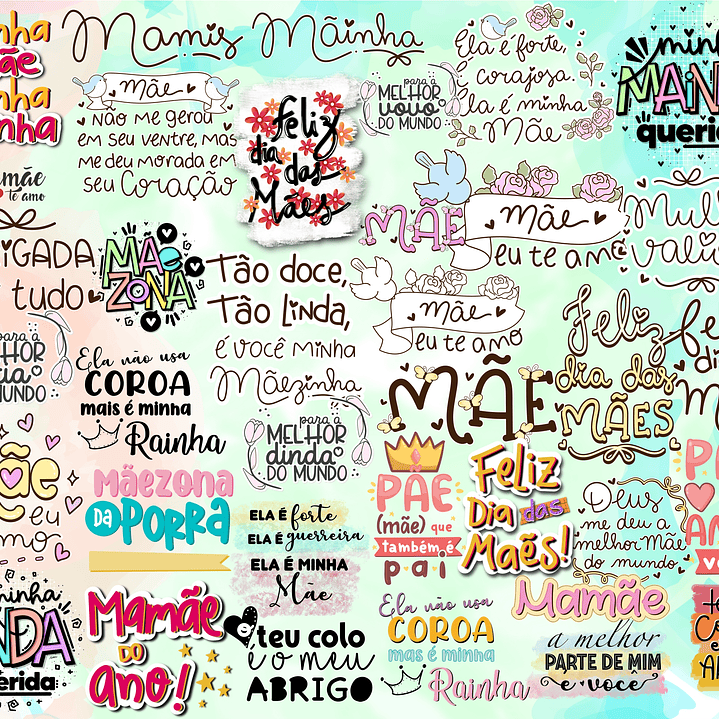 Mamis
Mãinha
Ela é forte,
é corajosa.
Ela é minha
Mãe
minha
querida
Mãe
não me gerou
em seu ventre, mas
me deu morada em
seu Coração
Feliz
dia
das
Mães
para a
MELHOR
vovó
DO MUNDO
mãe
te amo
MÃE
mãe
eu te amo
tudo
MÃe
ZONA
Tão doce,
Tão Linda,
é você minha
Mãezinha
mãe
eu te amo
Feliz
dia das
MÃES
DO MUNDO
Ela não usa
COROA
mais é minha
Rainha
para a
MELHOR
dinda
DO MUNDO
MÃE
Mãezona
DA PORRA
ELA É forte
ELA É guerreira
ELA É MINHA
Mãe
PAE
(mãe) que
também é
pai
Feliz
Dia das
Maẽs!
Deus
me deu a
melhor Mãe
do mundo
eu
minha
Mamãe
DO
ano!
teu colo
é o meu
ABRIGO
Ela não usa
COROA
mas é minha
Rainha
Mamãe
a melhor
PARTE DE MIM
é você